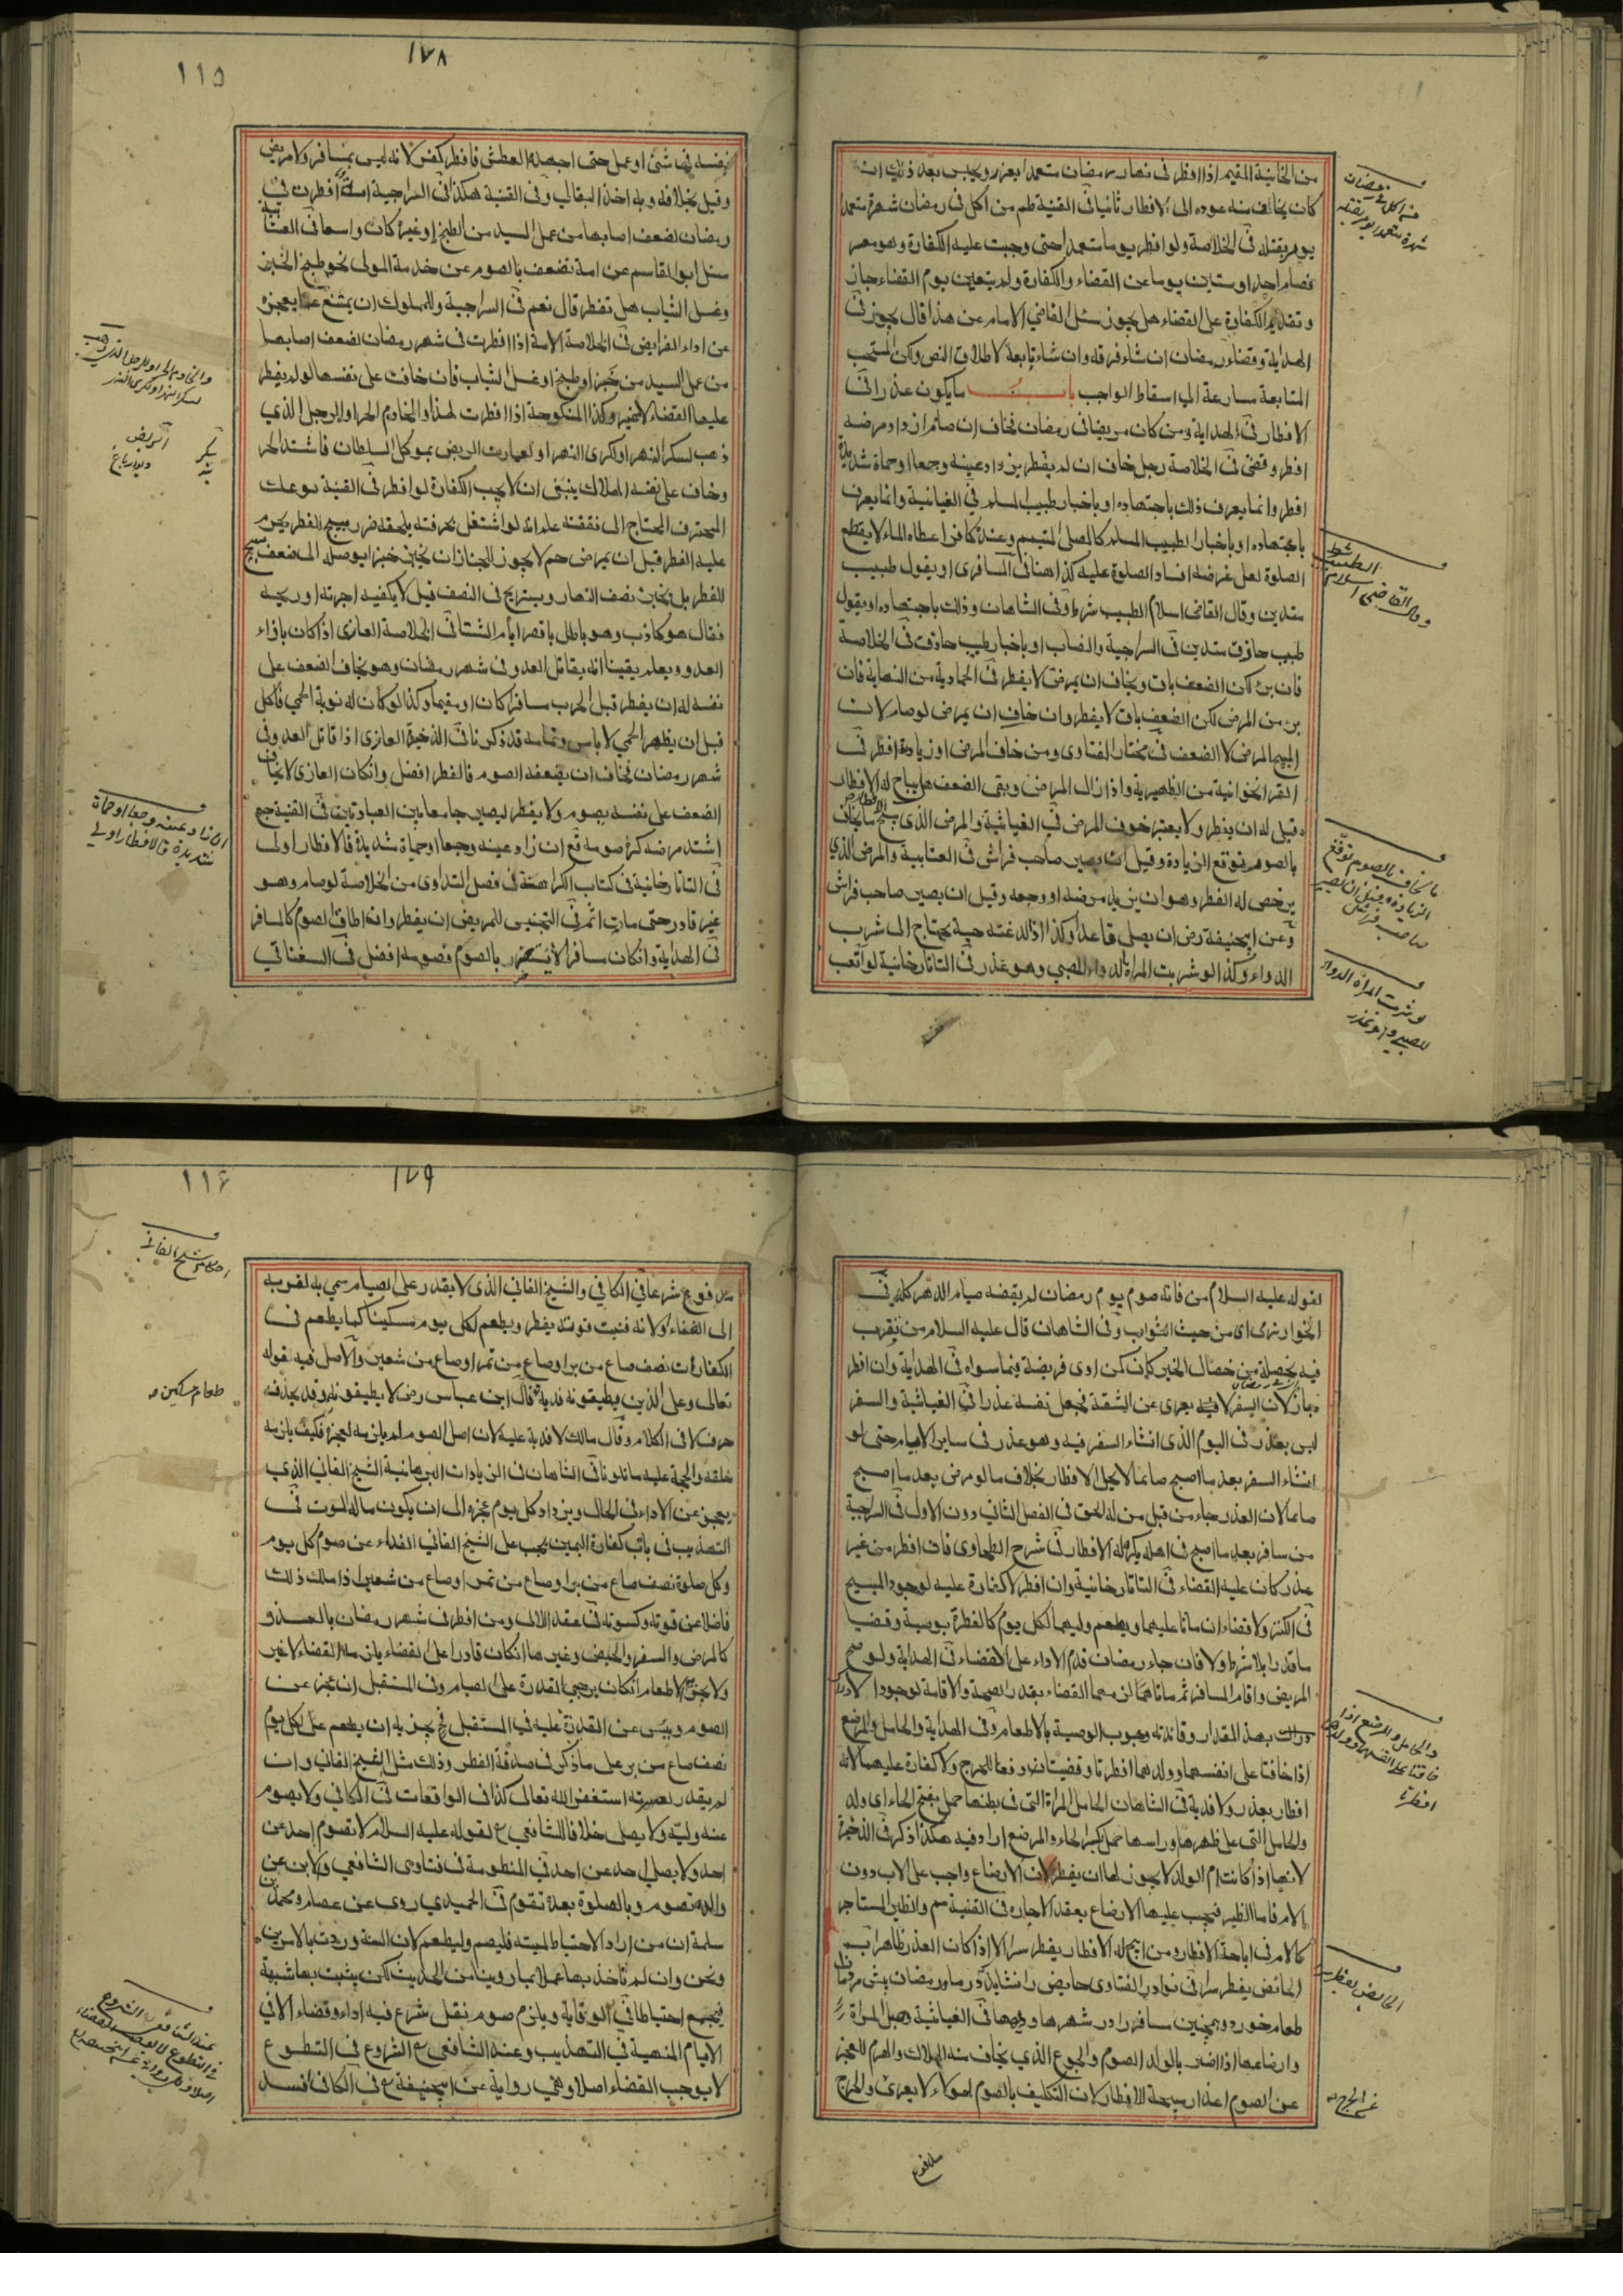 ١٧٨
١١٥
من الخانية المقيم اذا افطر فى نهار رمضان متعمدا يعزر ويحبس بعد ذلك ان
كان يخاف منه عوده الى الافطار ثانيا فى القنية طم من اكل فى رمضان شهرة متعمدا
يومر بقتله فى الخلاصة ولو افطر يوما متعمدا حتى وجبت عليه الكفارة وهو معسر
فصام احدا وستين يوما عن القضاء والكفارة ولم يتعين يوم القضاء جاز
وتقديم الكفارة على القضاء هل يجوز سئل القاضي الامام عن هذا قال يجوز فى
الهداية وقضاء رمضان ان شاء فرقه وان شاء تابعه لاطلاق النص ولكن المستحب
المتابعة مسارعة الى اسقاط الواجب باب ما يكون عذرا فى
الافطار فى الهداية ومن كان مريضا فى رمضان فخاف ان صام ازداد مرضه
افطر وقضى فى الخلاصة رجل خاف ان لم يفطر يزداد عينه وجعا او حماة شديدة
افطر وانما يعرف ذلك باجتهاده او باخبار طبيب مسلم فى الغياثية وانما يعرف
باجتهاده او باخبار الطبيب المسلم كالمصلى المتيمم وعنده كافر اعطاه الماء لا يقطع
الصلوة لعل غرضه افساد الصلوة عليه كذا هنا فى المسافرى او بقول طبيب
متدين وقال القاضى اسلام الطبيب شرط وفى الشاهان وذلك باجتهاده او بقول
طبيب حاذق متدين فى السراجية والنصاب او باخبار طبيب حاذق فى الخلاصة
فان برئ لكن الضعف باق ويخاف ان يمرض لا يفطر فى الحمادية من النهاية فان
برئ من المرض لكن الضعف باق لا يفطر وان خاف ان يمرض لو صام لان
المبيح المرض لا الضعف فى مختار الفتاوى ومن خاف المرض او زيادة افطر فى
الخوانية من الظهيرية واذا زال المرض وبقى الضعف هل يباح له الافطار
قيل له ان يفطر ولا يعتبر خوف المرض فى الغياثية والمرض الذى يبيح الافطار ما يخاف
بالصوم توقع الزيادة وقيل ان يصير صاحب فراش فى العتابية والمرض الذي
يرخص له الفطر وهو ان يزيد مرضه او وجعه وقيل ان يصير صاحب فراش
وعن ابيحنيفة رض ان يصلى قاعدا وكذا اذا لدغته حية يحتاج الى شرب
الدواء وكذا لو شربت المراة لدواء للصبي وهو عذر فى التاتارخانية لو اتعب
الطبيب شرط
وقال القاضى اسلام
ما يخاف بالصوم توقع
الزيادة وقيل ان يصير
صاحب فراش
لو شربت المراة الدواء
للصبي وهو عذر
نفسه فى شئ او عمل حتى اجهده العطش فافطر كفر لانه ليس بمسافر ولا مريض
وقيل بخلافه وبه اخذ البقالى وفى القنية هكذا فى السراجية امة افطرت فى
رمضان لضعف اصابها من عمل السيد من الطبخ او غيره كان واسعا فى العتابية
سئل ابو القاسم عن امة تضعف بالصوم عن خدمة المولى نحو طبخ الخبز
وغسل الثياب هل تفطر قال نعم فى السراجية وللمملوك ان يمتنع عما يعجزه
عن اداء الفرايض فى الخلاصة الامة اذا افطرت فى شهر رمضان لضعف اصابها
من عمل السيد من خبز او طبخ او غسل الثياب فان خافت على نفسها لو لم يفطر
عليها القضاء لا غير وكذا المنكوحة اذا افطرت لهذا والخادم الحر او الرجل الذي
ذهب لسكر النهر او لكرى النهر او لعمارت الربض بموكل السلطان فاشتد الحر
وخاف على نفسه الهلاك ينبغى ان لا يجب الكفارة لو افطر فى القنية
المحترف المحتاج الى نفقته علم انه لو اشتغل بحرفته يلحقه ضرر مبيح للفطر يحرم
عليه الفطر قبل ان يمرض حم لا يجوز للخباز ان يخبز خبزا يوصله الى ضعف مبيح
للفطر بل يخبز نصف النهار ويستريح فى النصف قيل لا يكفيه اجرته او ربحه
فقال هو كاذب وهو باطل باقصر ايام الشتا فى الخلاصة الغازى اذا كان بازاء
العدو ويعلم يقينا انه يقاتل العدو فى شهر رمضان وهو يخاف الضعف على
نفسه له ان يفطر قبل الحرب مسافرا كان او مقيما وكذا لو كان له نوبة الحمى فاكل
قبل ان يظهر الحمى لا باس وتمامه قد ذكرنا فى الذخيرة الغازى اذا قاتل العدو فى
شهر رمضان فخاف ان يضعفه الصوم فالفطر افضل وان كان الغازى لا يخاف
الضعف على نفسه يصوم ولا يفطر ليصير جامعا بين العبادتين فى القنية جم
اشتد مرضه كره صومه قع ان زاد عينه وجعا او حماة شديدة فالافطار اولى
فى التاتارخانية فى كتاب الكراهية فى فصل التداوى من الخلاصة لو صام وهو
غير قادر حتى مات اثم فى التجنيس للمريض ان يفطر وان اطاق الصوم كالمسافر
فى الهداية وان كان مسافرا لا يستضر بالصوم فصومه افضل فى السغناقي
ان زاد عينه وجعا او حماة
شديدة فالافطار اولى
١٧٩
١١٦
لقوله عليه السلام من فاته صوم يوم رمضان لم يقضه صيام الدهر كله فى
الخوارزمى اى من حيث الثواب وفى الشاهان قال عليه السلام من تقرب
فيه بخصلة من خصال الخير كان كمن ادى فريضة فيما سواه فى الهداية وان افطر
جاز لان السفر لا يعرى عن المشقة فجعل نفسه عذرا فى الغياثية والسفر
ليس بعذر فى اليوم الذى انشاء السفر فيه وهو عذر فى ساير الايام حتى لو
انشاء السفر بعد ما اصبح صائما لا يحل الافطار بخلاف ما لو مرض بعد ما اصبح
صائما لان العذر جاء من قبل من له الحق فى الفصل الثانى دون الاول فى السراجية
من سافر بعد ما اصبح فى اهله يكره له الافطار فى شرح الطحاوى فان افطر من غير
عذر كان عليه القضاء فى التاتارخانية وان افطر لا كفارة عليه لوجود المبيح
فى الكنز ولا قضاء ان ماتا عليهما ويطعم وليهما لكل يوم كالفطرة بوصية وقضيا
ما قدرا بلا شرط ولا فان جاء رمضان قدم الاداء على القضاء فى الهداية ولو صح
المريض واقام المسافر ثم ماتا لزمهما القضاء بقدر الصحة والاقامة لوجود الادراك
بهذا المقدار وفائدته وجوب الوصية بالاطعام وفى الهداية والحامل والمرضع
اذا خافتا على انفسهما وولدهما افطرتا وقضيتا دفعا للحرج ولا كفارة عليهما لانه
افطار بعذر ولا فدية فى الشاهان الحامل المراة التى فى بطنها حمل بفتح الحاء اى ولد
والحامل التى على ظهرها وراسها حمل بكسر الحاء والمرضع اراد فيه هكذا ذكر فى الذخيرة
لانها اذا كانت ام الولد لا يجوز لها ان يفطر لان الارضاع واجب على الاب دون
الام فاما الظير فيجب عليها الارضاع بعقد الاجاره فى القنية سم والظير المستاجر
كالام فى اباحة الافطار ومن ابيح له الافطار يفطر سرا الا اذا كان العذر ظاهرا فى
الحائض يفطر سرا فى نوادر الفتاوى حايض را نشايد در ماه رمضان پيش مردمان
طعام خورد وهمچنين مسافر را در شهر ها و ديهها فى الغياثية وحبل المراة
وارضاعها اذا اضر بالولد الصوم والجوع الذي يخاف منه الهلاك والهرم للعجز
عن الصوم اعذار مبيحة للافطار لان التكليف بالصوم لهؤلاء لا يعرى والحرج
والحامل والمرضع اذا
خافتا على انفسهما وولدهما
افطرتا
الحايض يفطر سرا
عن الحرج
مدفوع
مدفوع شرعا فى الكافي والشيخ الفانى الذى لا يقدر على الصيام سمي به لقربه
الى الفناء او لانه فنيت قوته يفطر ويطعم لكل يوم مسكينا كما يطعم فى
الكفارات نصف صاع من بر او صاع من تمر او صاع من شعير والاصل فيه قوله
تعالى وعلى الذين يطيقونه فدية قال ابن عباس رض لا يطيقونه وقد يحذف
حرف لا فى الكلام وقال مالك لا فدية عليه لان اصل الصوم لم يلزمه لعجزه فكيف يلزمه
خلفه والحجة عليه ما تلونا فى الشاهان فى الزيادات البرهانية الشيخ الفاني الذي
يعجز عن الاداء فى الحال ويزداد كل يوم عجزه الى ان يكون ماله الموت فى
التهذيب فى باب كفارة اليمين يجب على الشيخ الفانى الفداء عن صوم كل يوم
وكل صلوة نصف صاع من بر او صاع من تمر او صاع من شعير اذا ملك ذلك
فاضلا عن قوته وكسوته فى عقد اللالى ومن افطر فى شهر رمضان بالعذر
كالمرض والسفر والحيض وغيرها ان كان قادرا على القضاء يلزمه القضاء لا غير
ولا يجزئ الاطعام ان كان يرجى القدرة على الصيام وفى المستقبل ان عجز عن
الصوم ويئس عن القدرة عليه فى المستقبل يجزيه ان يطعم عن كل يوم
نصف صاع من بر على ما ذكر فى صدقة الفطر وذلك مثل الشيخ الفانى وان
لم يقدر لعسرته استغفر الله تعالى كذا فى الواقعات فى الكافي ولا يصوم
عنه وليه ولا يصلى خلافا للشافعي ع لقوله عليه السلام لا يصوم احد عن
احد ولا يصلى احد عن احد فى المنظومة فى فتاوى الشافعي والابن عن
والده تصوم وبالصلوة بعده تقوم فى الحميدي روى عن عصام ومحمد بن
سلمة ان من اراد الاحتياط لميته فليصم وليطعم لان السنة وردت بالامرين
ونحن وان لم ناخذ بها عملا بما روينا من الحديث لكن يثبت بها شبهة
فيجمع احتياطا فى الوقاية ويلزم صوم نفل شرع فيه اداء وقضاء الا فى
الايام المنهية فى التهذيب وعند الشافعي ع الشروع فى التطوع
لا يوجب القضاء اصلا وهي رواية عن ابيحنيفة ع فى الكافى افسد
احكام شيخ الفانى
طعام مسكين